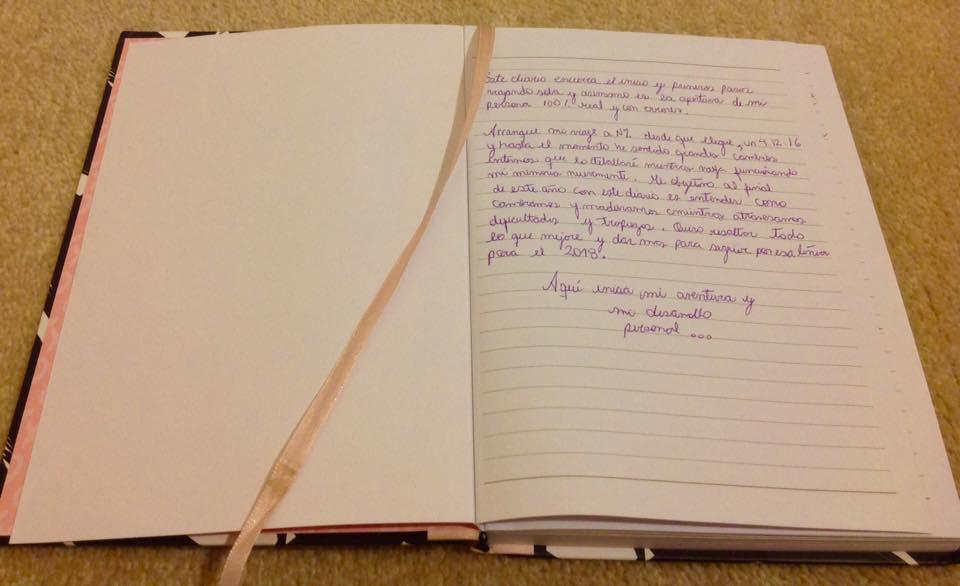 Este diario encierra el inicio y primeros pasos
viajando sola y asimismo es la apertura de mi
persona 100% real y con errores.
Arranque mi viaje a NZ desde que llegue, un 4.12.16
y hasta el momento he sentido grandes cambios
internos que lo detallaré mientras vaya funcionando
mi memoria nuevamente. Mi objetivo al final
de este año con este diario es entender como
cambiamos y maduramos mientras atravesamos
dificultades y tropiezos. Quiro resaltar todo
lo que mejore y dar mas para seguir por esa línea
para el 2018.
Aquí inicia mi aventura y
mi desarollo
personal ...